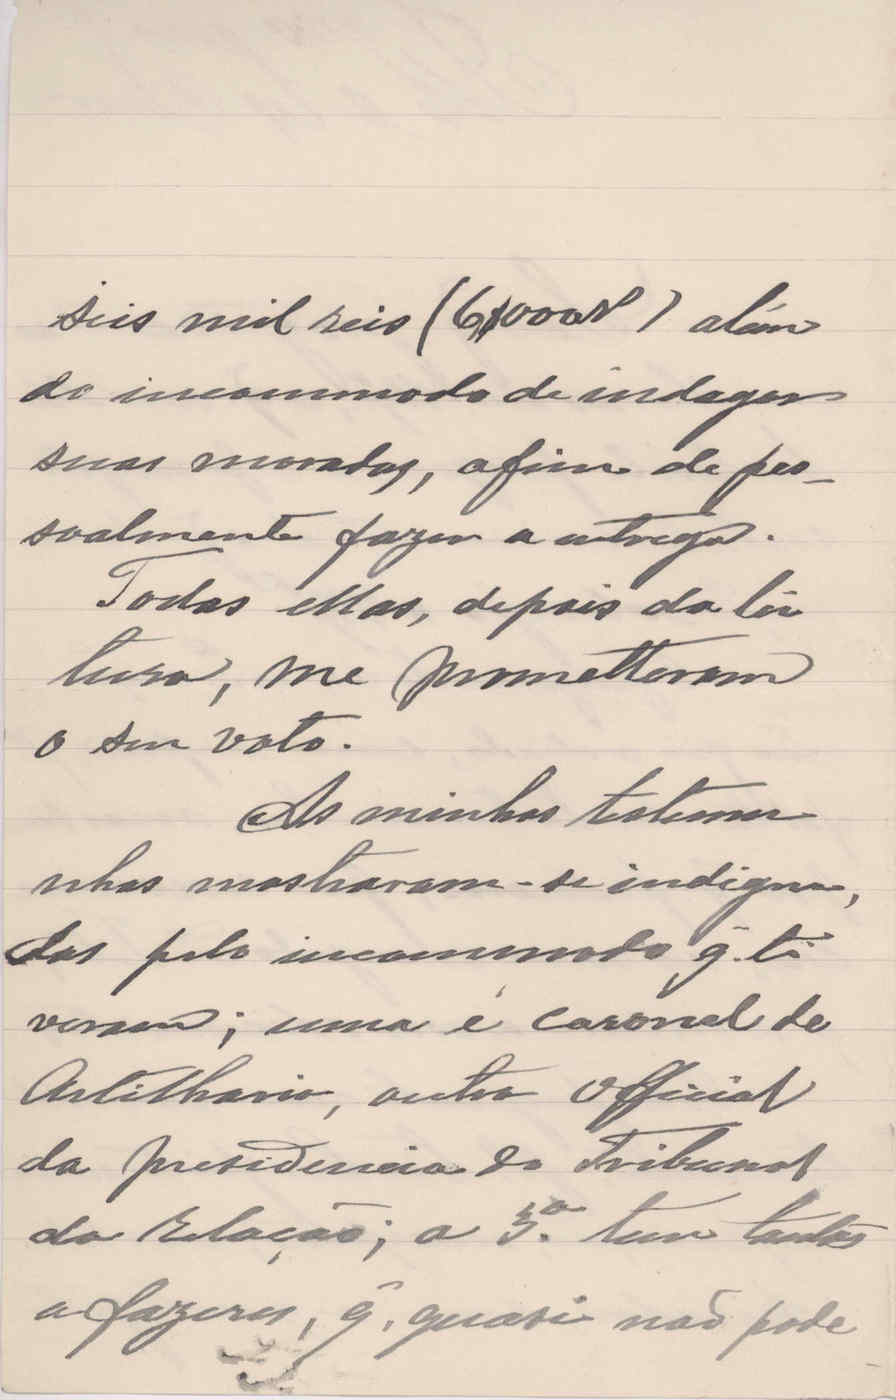 seis mil reis (6$000rs) alám
do incommodo de indagar
suas moradas, afim de pes-
soalmente fazer a entrega.
Todas ellas, depois da lei
tura, me prometteram
o seu voto.
As minhas testemu
nhas mostraram-se indigna,
das pelo incommodo q̃. ti
veram; uma é coronel de
Artilharia, outro Official
da presidencia do Tribunal
da Relação; a 3.ª tem tantos
afazeres, q̃. quasi não pode